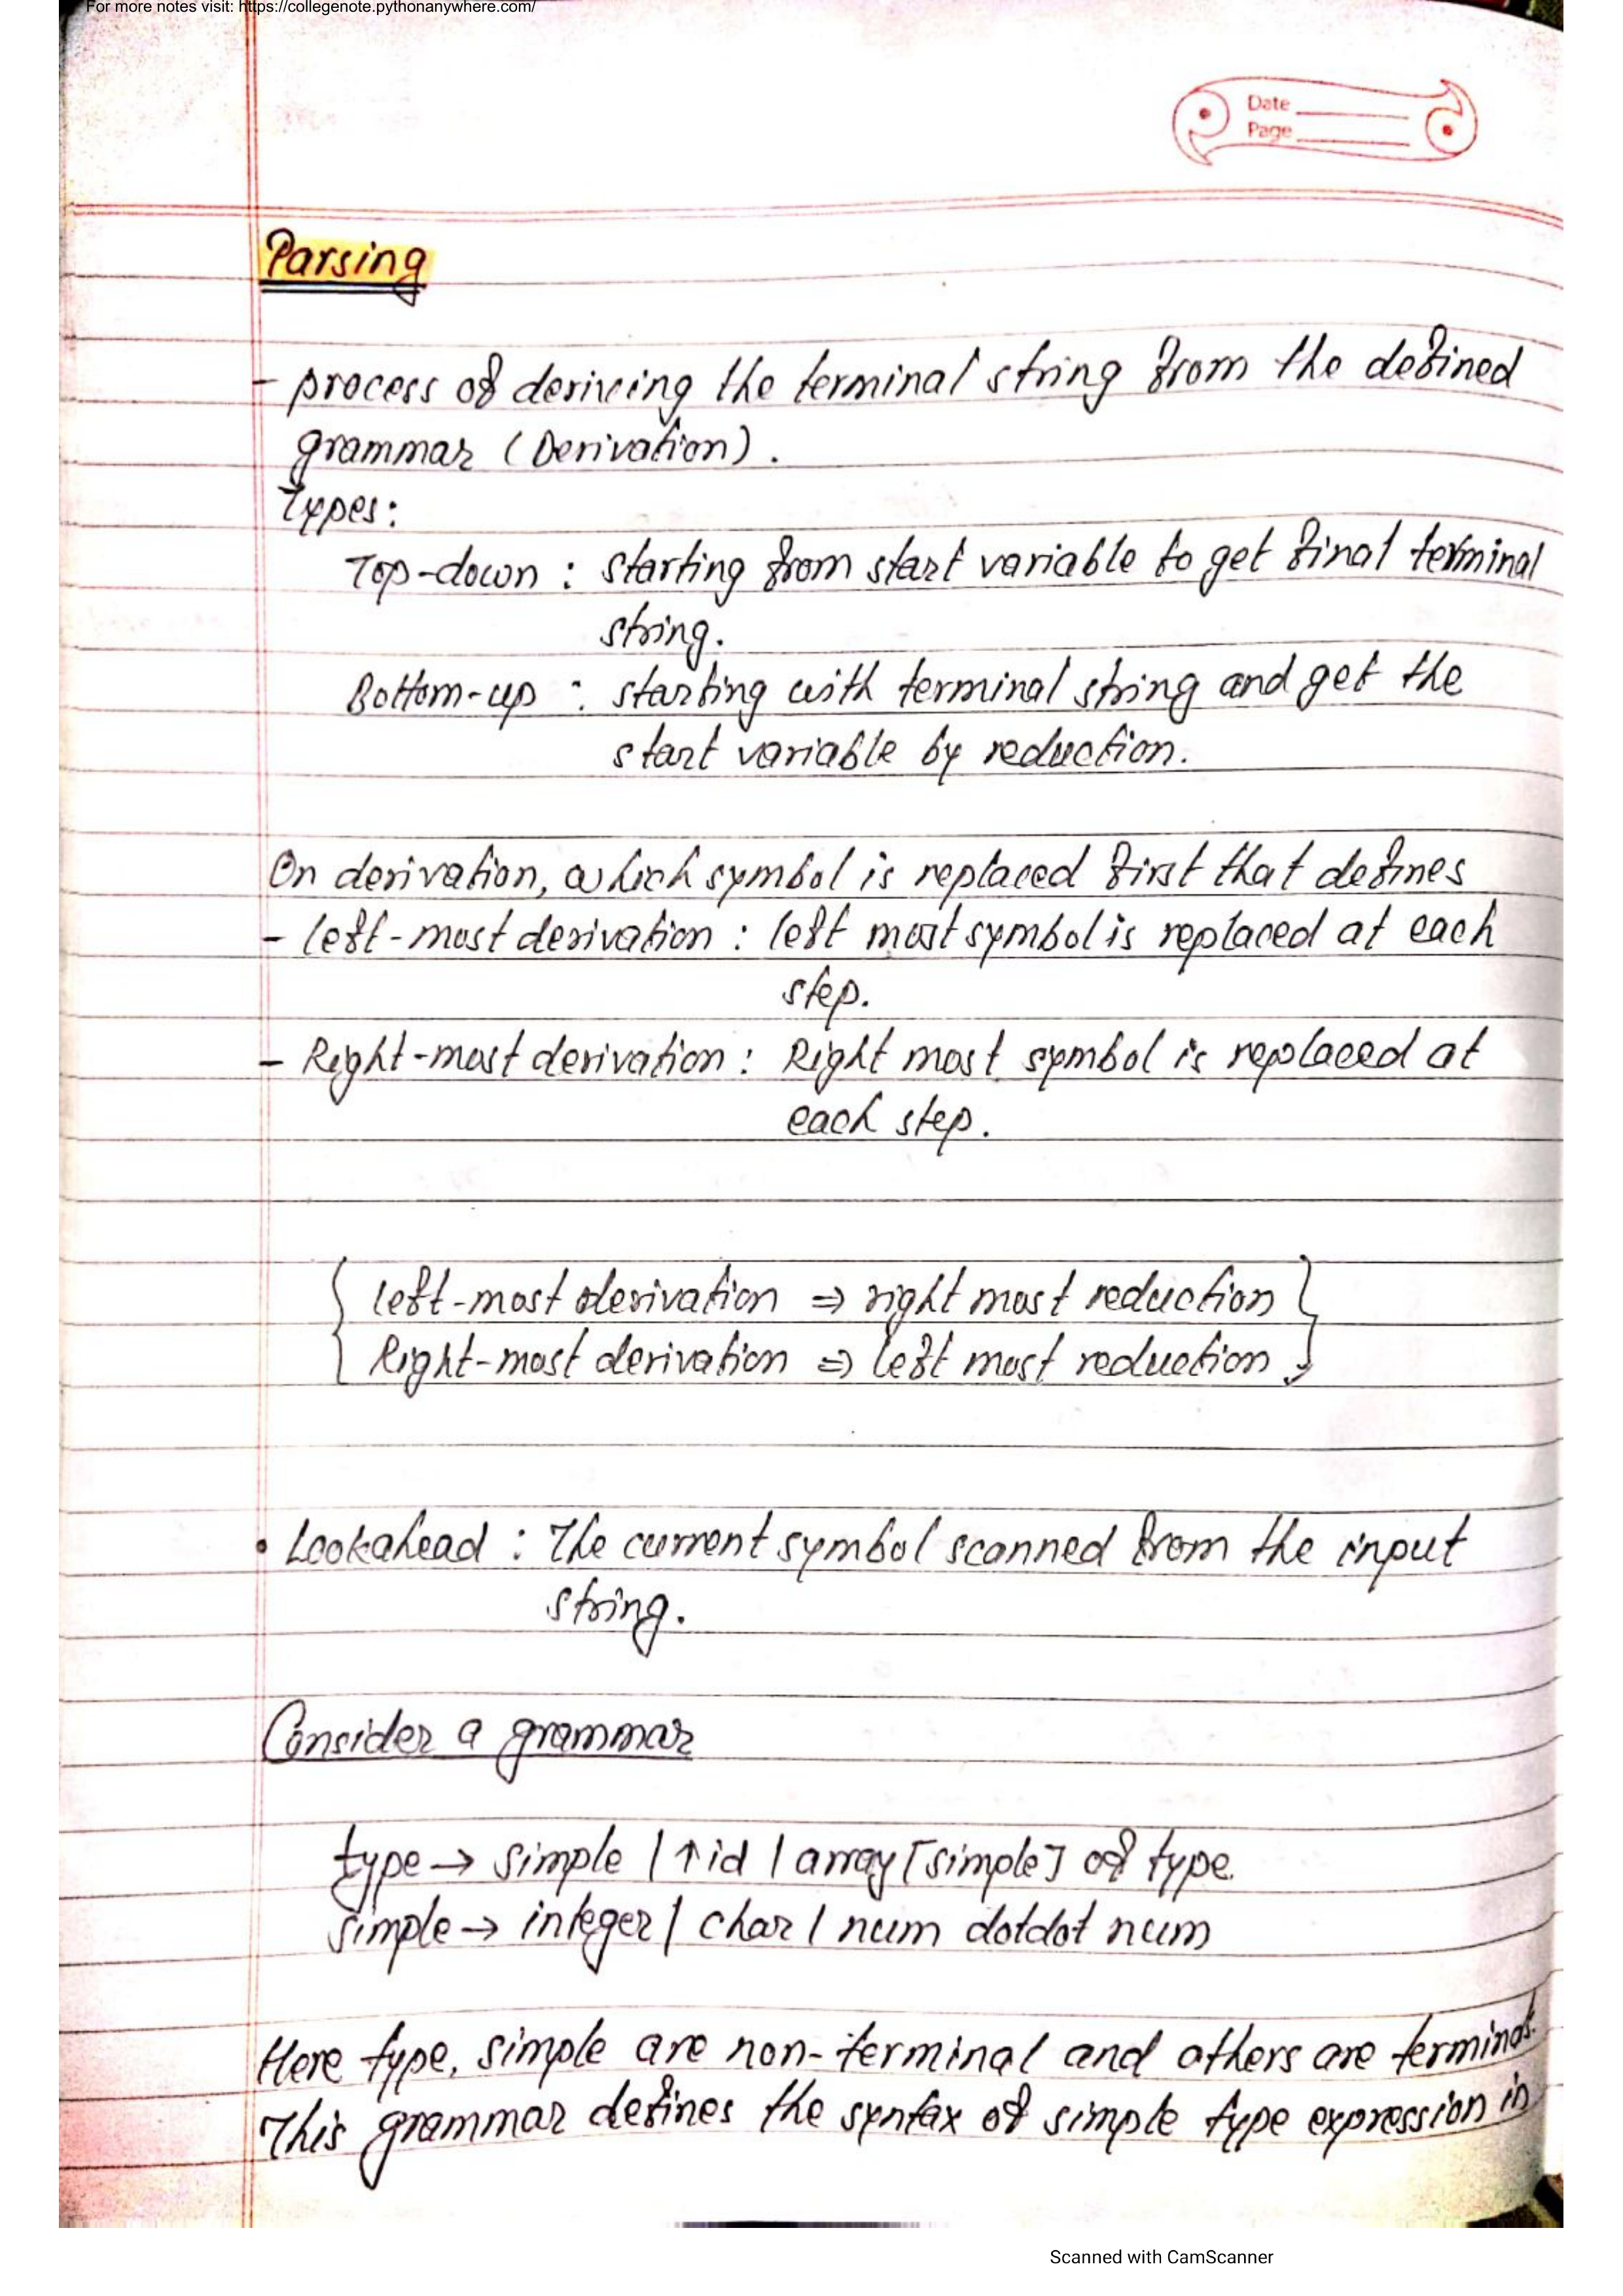 For more notes visit: https://collegenote.pythonanywhere.com/
Date
Page
Parsing
- process of deriving the terminal string from the defined
grammar (Derivation).
Types:
Top-down : starting from start variable to get final terminal
string.
Bottom-up : starting with terminal string and get the
start variable by reduction.
On derivation, which symbol is replaced first that defines
- left-most derivation : left most symbol is replaced at each
step.
- Right-most derivation : Right most symbol is replaced at
each step.
{ left-most derivation ⇒ right most reduction }
{ Right-most derivation ⇒ left most reduction }
• Lookahead : The current symbol scanned from the input
string.
Consider a grammar
type → simple | ↑id | array [simple] of type
simple → integer | char | num dotdot num
Here type, simple are non-terminal and others are terminal.
This grammar defines the syntax of simple type expression in
Scanned with CamScanner